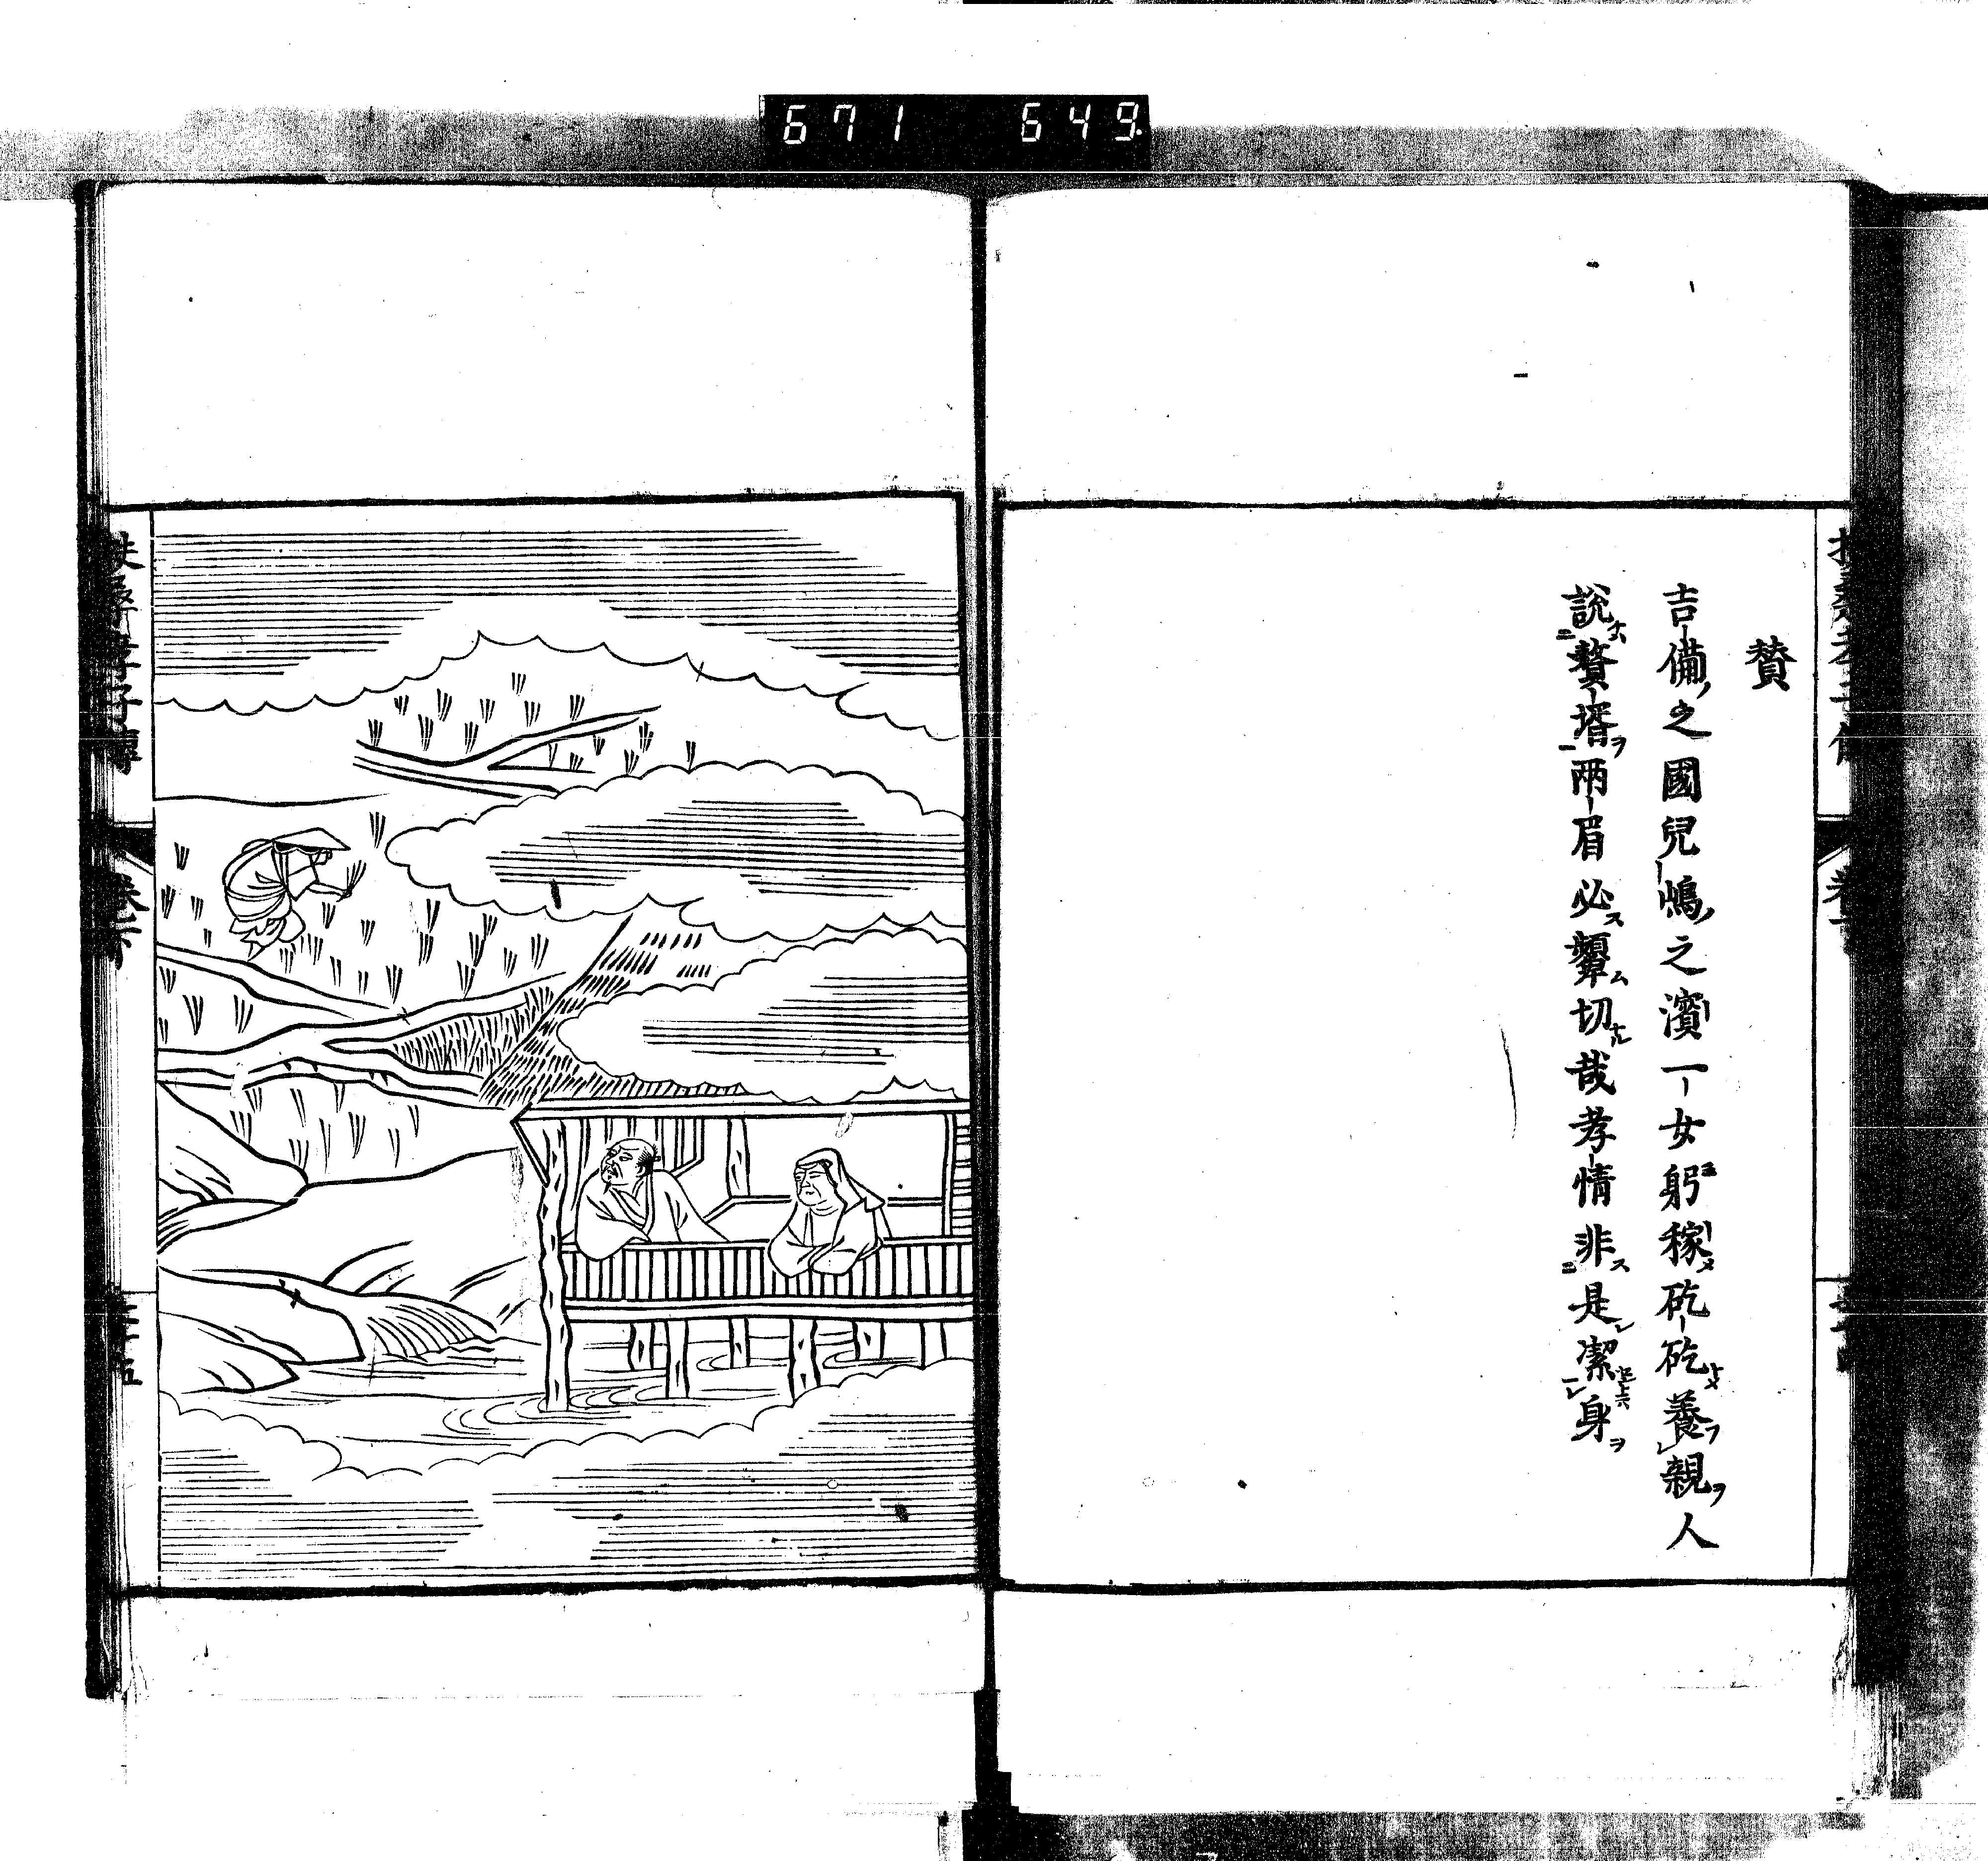 671 649
賛
吉備之國兒嶋之濱一女躬稼矻矻養親人
說贅壻兩眉必顰切哉孝情非是潔身
扶桑孝子傳
卷下
扶桑孝子傳
卷下